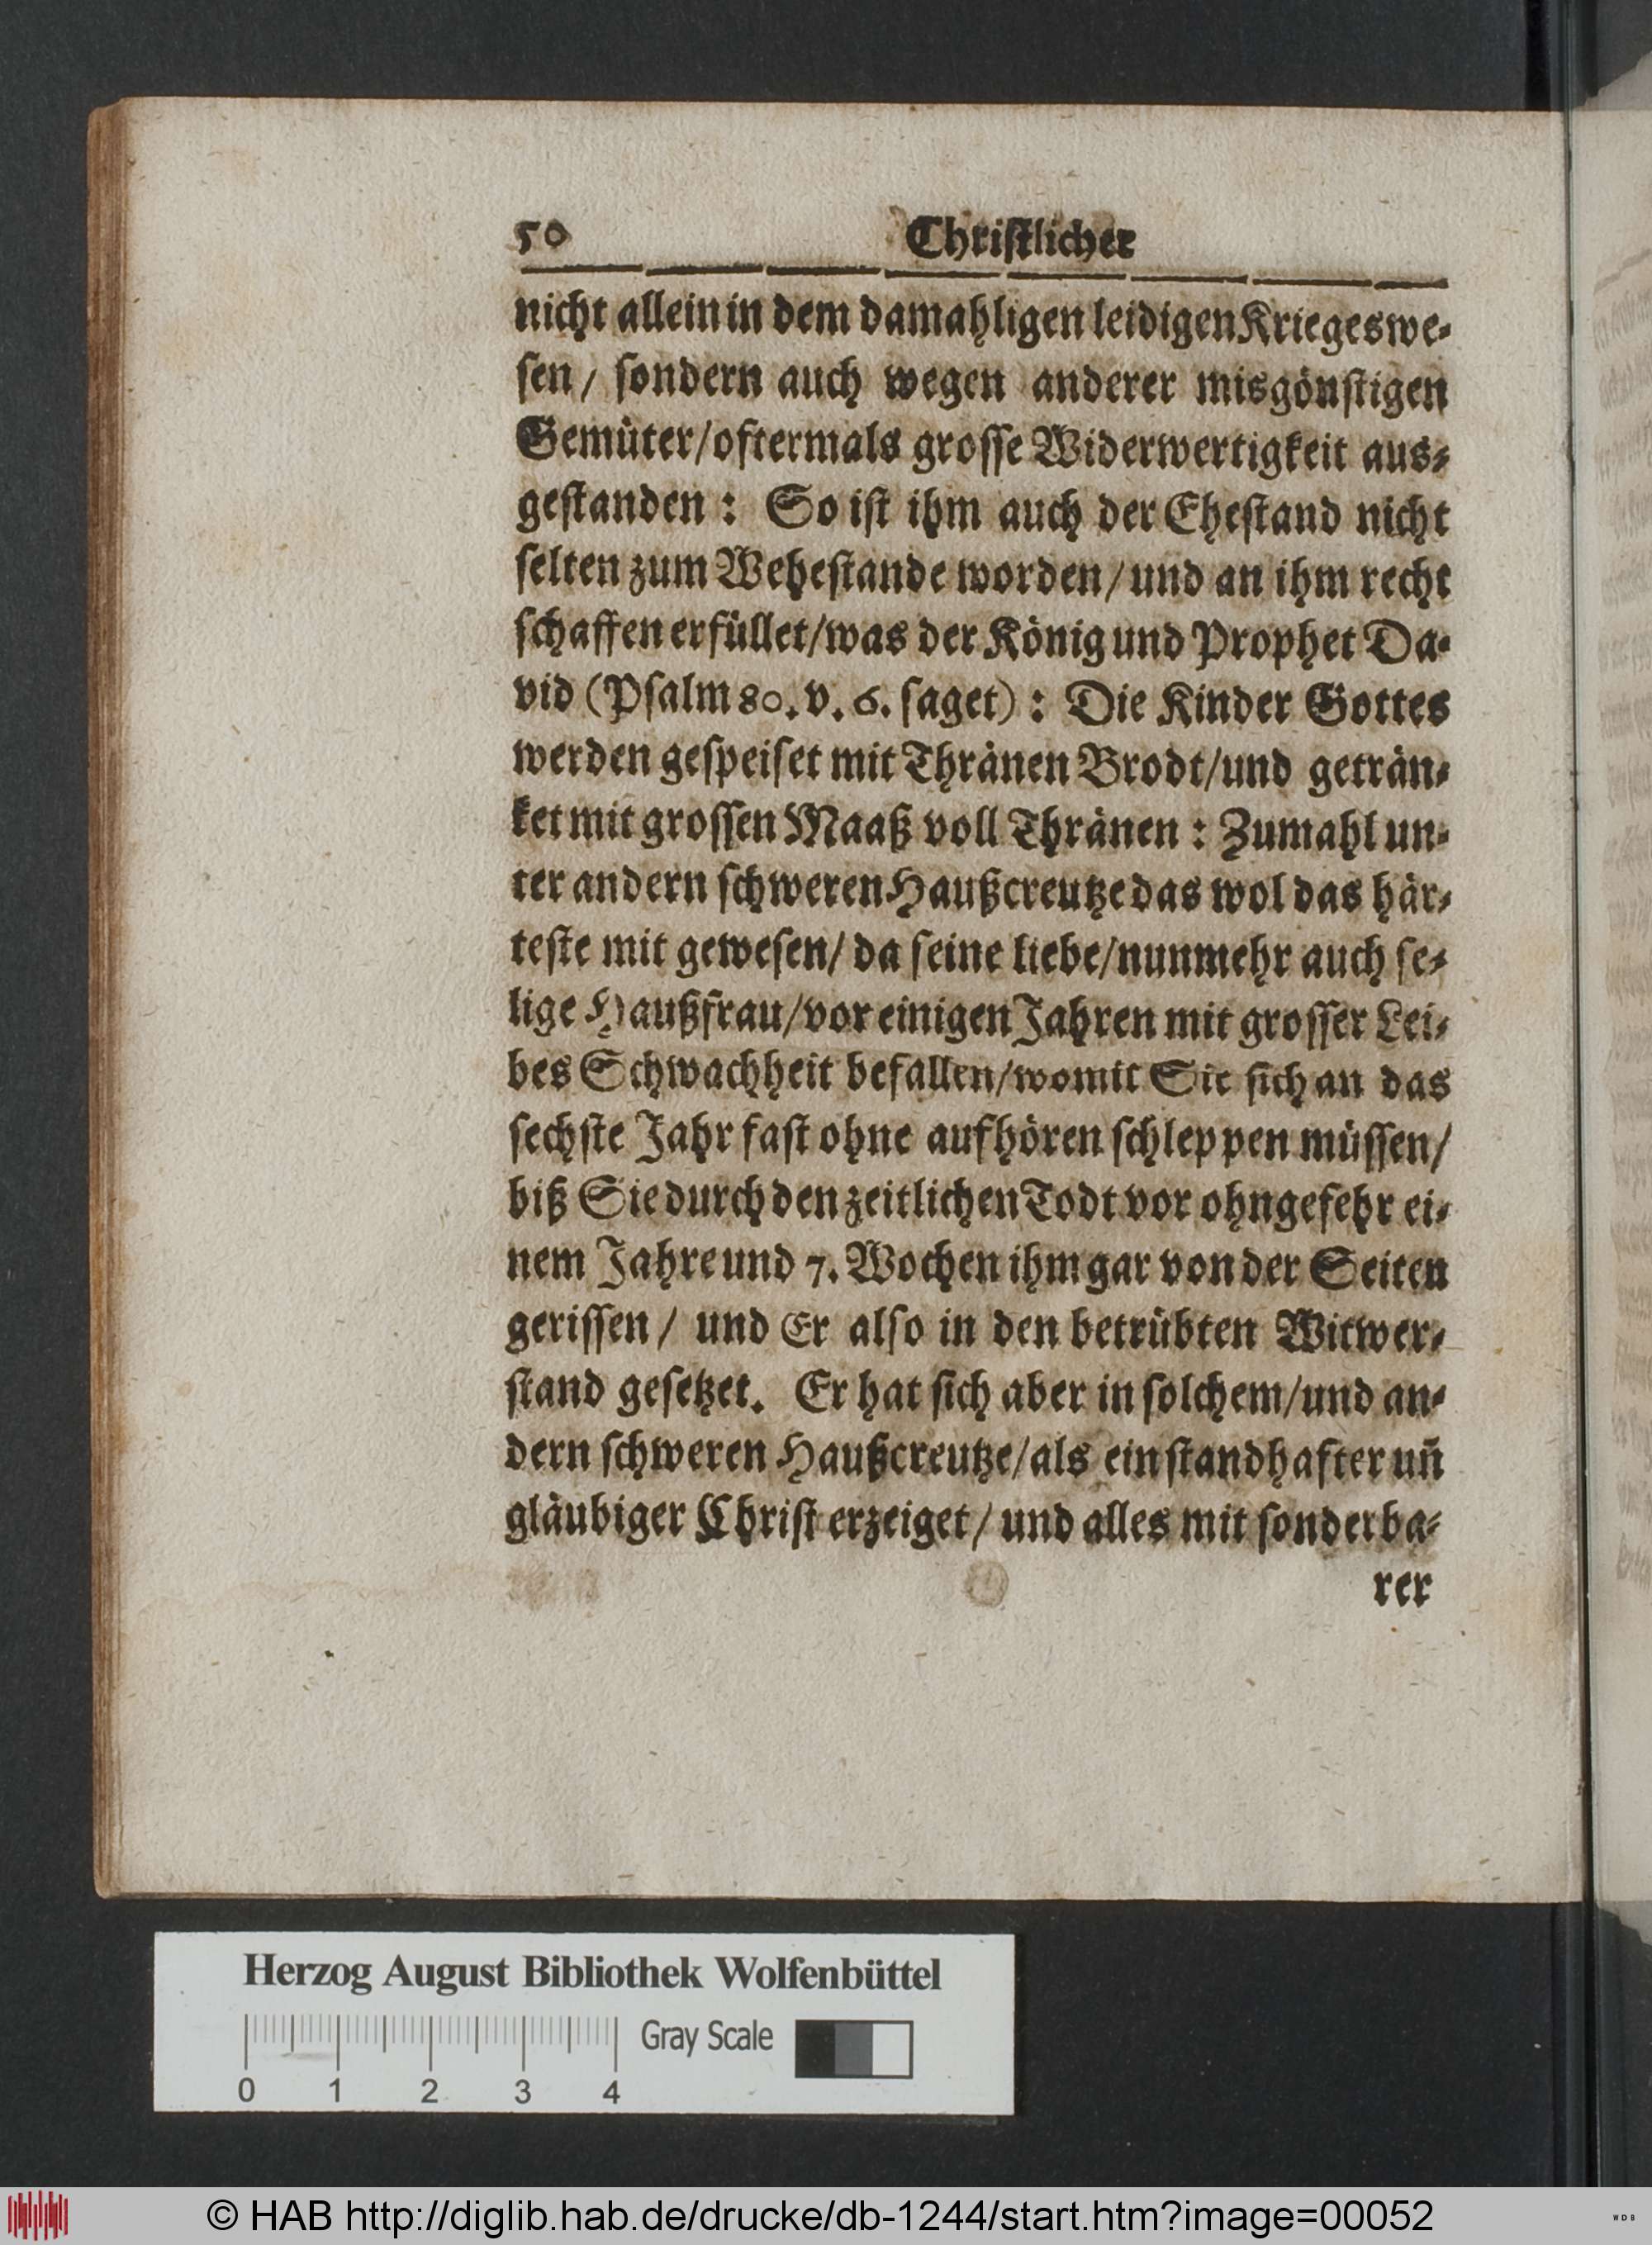 50 Christlicher
nicht allein in dem damahligen leidigen Krieges we⸗
sen / sondern auch wegen anderer misgönstigen
Gemüter/oftermals grosse Widerwertigkeit aus⸗
gestanden : So ist ihm auch der Ehestand nicht
selten zum Wehestande worden/und an ihm recht
schaffen erfüllet/was der König und Prophet Da⸗
vid (Psalm 80. v. 6. saget) : Die Kinder Gottes
werden gespeiset mit Thränen Brodt/und geträn⸗
ket mit grossen Maaß voll Thränen : Zumahl un⸗
ter andern schweren Haußcreutze das wol das här⸗
teste mit gewesen/ da seine liebe/nunmehr auch se⸗
lige Haußfrau/vor einigen Jahren mit grosser Lei⸗
bes Schwachheit befallen/womit Sie sich an das
sechste Jahr fast ohne aufhören schleppen müssen/
biß Sie durch den zeitlichen Todt vor ohngefehr ei⸗
nem Jahre und 7. Wochen ihm gar von der Seiten
gerissen / und Er also in den betrübten Witwer⸗
stand gesetzet. Er hat sich aber in solchem/und an⸗
dern schweren Haußcreutze/als ein standhafter un̄
gläubiger Christ erzeiget/ und alles mit sonderba⸗
rer
Herzog August Bibliothek Wolfenbüttel
Gray Scale
0 1 2 3 4
© HAB http://diglib.hab.de/drucke/db-1244/start.htm?image=00052
WDB